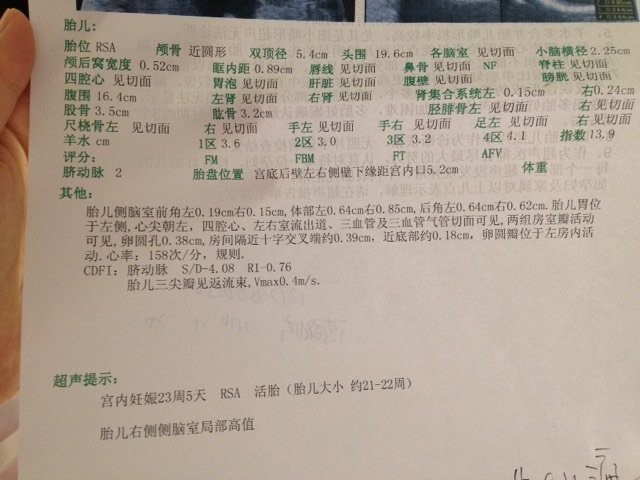 胎儿:
胎位 RSA 颅骨 近圆形 双顶径 5.4cm 头围 19.6cm 各脑室 见切面 小脑横径 2.25cm
颅后窝宽度 0.52cm 眶内距 0.89cm 唇线 见切面 鼻骨 见切面 NF 脊柱 见切面
四腔心 见切面 胃泡 见切面 肝脏 见切面 腹壁 见切面 膀胱 见切面
腹围 16.4cm 左肾 见切面 右肾 见切面 肾集合系统左 0.15cm 右0.24cm
股骨 3.5cm 肱骨 3.2cm 胫腓骨左 见切面 右 见切面
尺桡骨左 见切面 右 见切面 手左 见切面 手右 见切面 足左 见切面 右 见切面
羊水 cm 1区 3.6 2区 3.0 3区 3.2 4区 4.1 指数 13.9
评分: FM FBM FT AFV
脐动脉 2 胎盘位置 宫底后壁左右侧壁下缘距宫内口5.2cm 体重
其他:
胎儿侧脑室前角左0.19cm右0.15cm,体部左0.64cm右0.85cm,后角左0.64cm右0.62cm. 胎儿胃位
于左侧,心尖朝左, 四腔心、左右室流出道、三血管及三血管气管切面可见,两组房室瓣活动
可见,卵圆孔0.38cm,房间隔近十字交叉端约0.39cm, 近底部约0.18cm, 卵圆瓣位于左房内活
动.心率: 158次/分, 规则.
CDFI: 脐动脉 S/D-4.08 RI-0.76
胎儿三尖瓣见返流束,Vmax0.4m/s.
超声提示:
宫内妊娠23周5天 RSA 活胎（胎儿大小 约21-22周）
胎儿右侧侧脑室局部高值